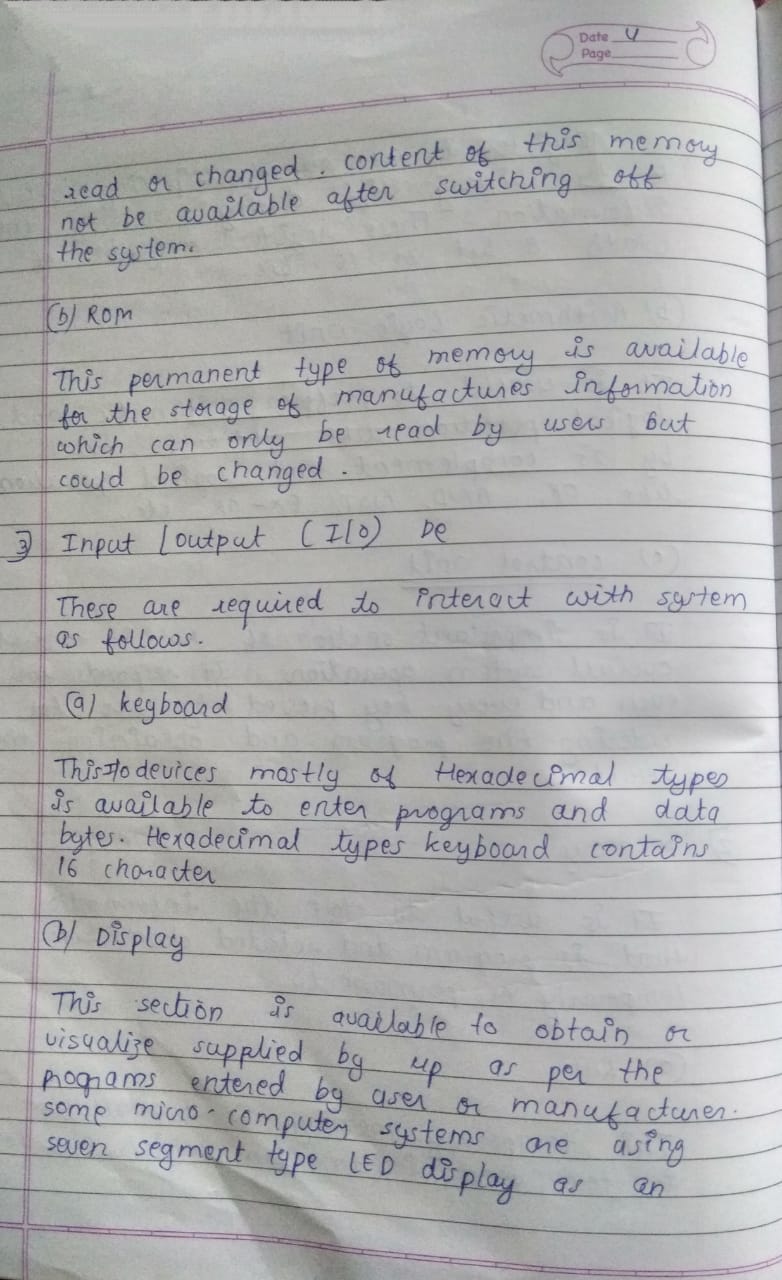 Date 4
Page
read or changed. content of this memory
not be available after switching off
the system.
(b) ROM
This permanent type of memory is available
for the storage of manufactures information
which can only be read by users but
could be changed.
3) Input / output (I/O) De
These are required to interact with system
as follows.
(a) keyboard
This I/o devices mostly of Hexadecimal types
is available to enter programs and data
bytes. Hexadecimal types keyboard contains
16 character
(b) Display
This section is available to obtain or
visualize supplied by up as per the
programs entered by user or manufacturer.
some micro-computer systems are using
seven segment type LED display as an